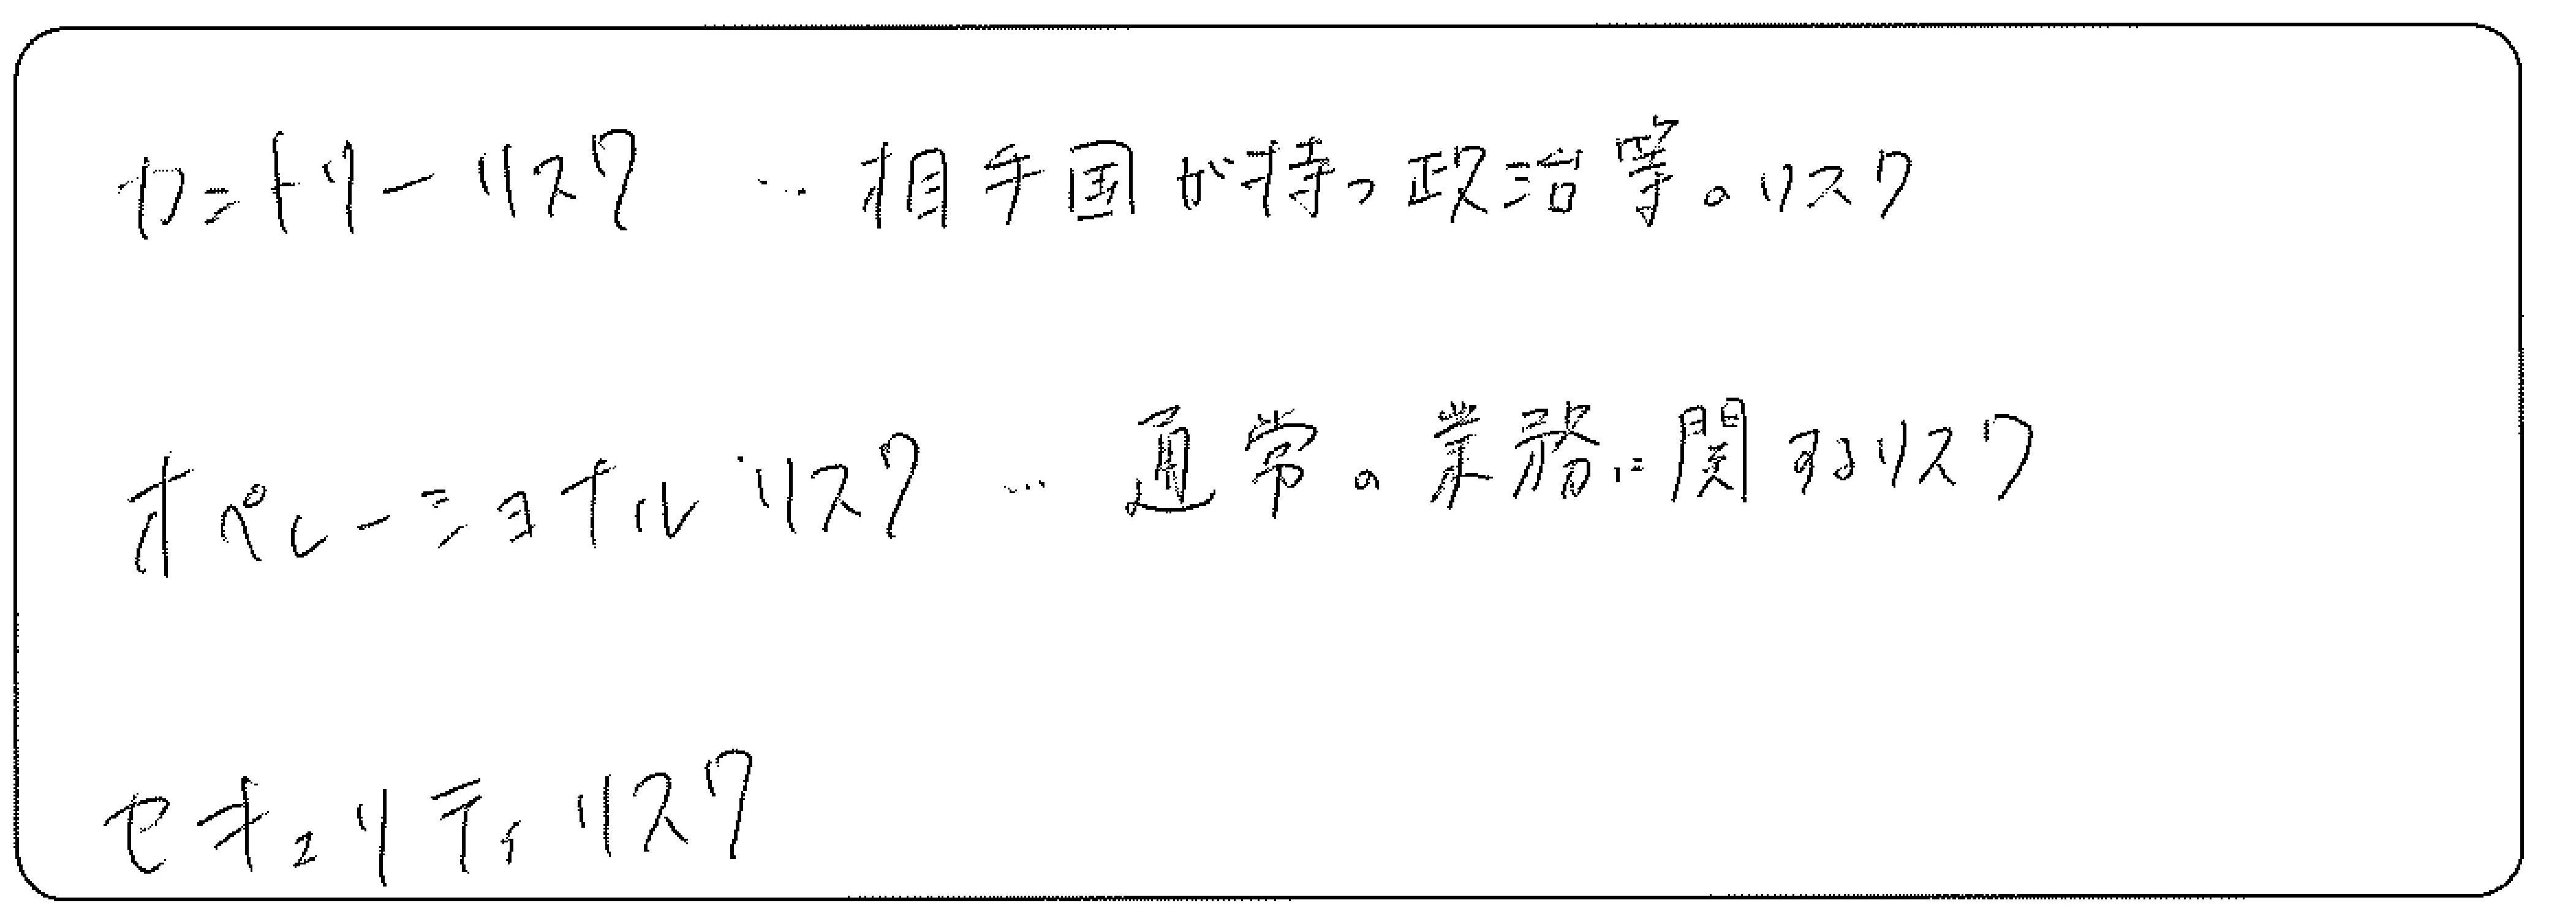 カントリーリスク … 相手国が持つ政治等のリスク
オペレーショナルリスク … 通常の業務に関するリスク
セキュリティリスク